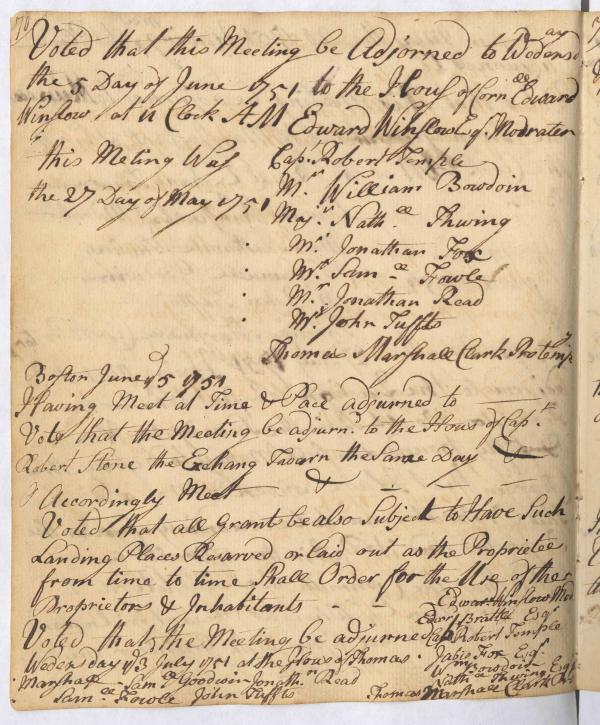 Voted that this Meeting be Adjorned to Wedensday
the 5 Day of June 1751 to the Hous of Corn.ll Edward
Winslow at 11 Clock AM Edward Winslow Esq.r Modrater
this Meting Was Cap.t Robert Temple
the 27 Day of May 1751 M.r William Bowdoin
Maj.r Nath.ll Thwing
M.r Jonathan Fox
M.r Sam.ll Fowle
M.r Jonathan Read
M.r John Tuffts
Thomas Marshall Clark Protemp.r
Boston June 5 1751
Having Meet at Time & Place adjurned to
Vote that the Meeting be adjurn.d to the Hous of Cap.t
Robert Stone the Exchang Tavern the Same Day &
Accordingly Meet & - - -
Voted that all Grants be also Subject to Have Such
Landing Places Reserved or laid out as the Proprietee
from time to time Shall Order for the Use of the
Proprietors & Inhabitants - - Edward Winslow Mod
Voted that the Meeting be adjurned Edw.d Brattle Esq.r
Cap.t Robert Temple
Wedensday y.e 3 July 1751 at the Hous of Thomas Jabis Fox Esq.r
Wm Bowdoin
Marshall - Sam.ll Goodwin Jonath.n Read Nath.ll Thwing Esq.r
Sam.ll Fowle John Tuffts Thomas Marshall Clark